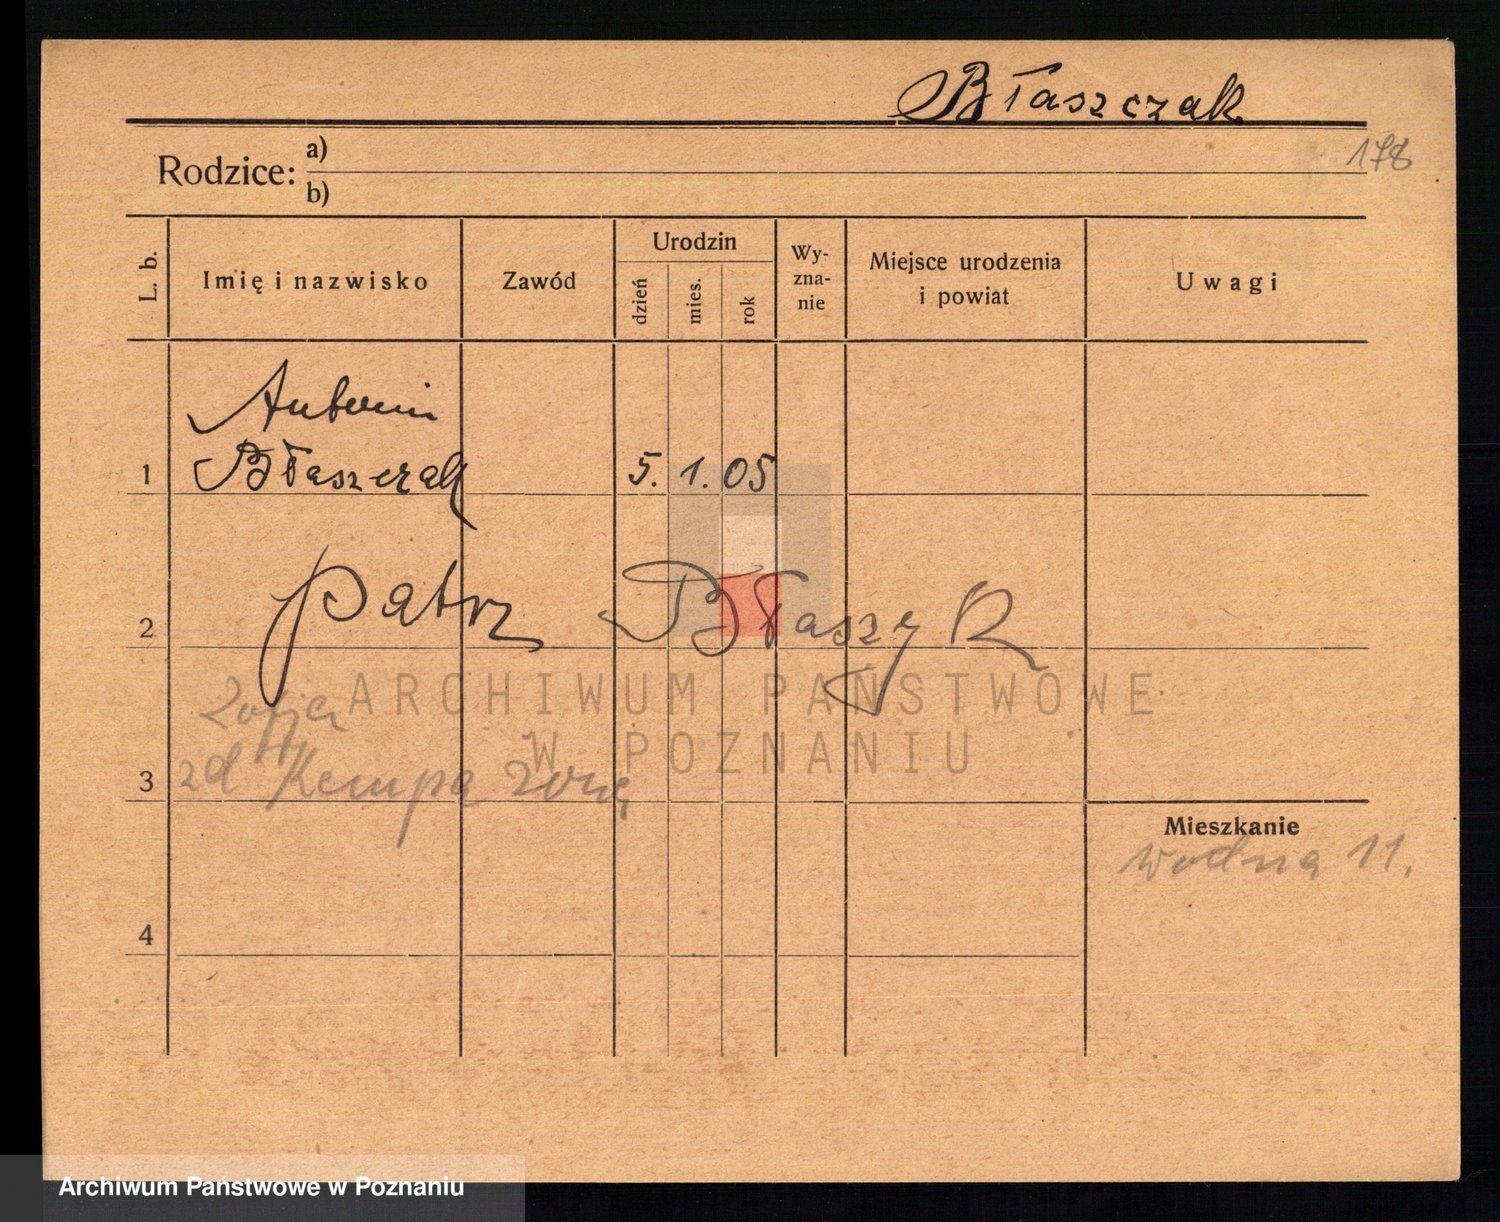 Błaszczak
178
Rodzice: a)
b)
L. b. Imię i nazwisko Zawód Urodzin dzień mies. rok Wy-zna-nie Miejsce urodzenia i powiat Uwagi
Antoni
1 Błaszczak 5. 1. 05
2 Patrz Błaszyk
Zofja
3 zd Kempa żona
Mieszkanie
Wodna 11.
4
ARCHIWUM PAŃSTWOWE
W POZNANIU
Archiwum Państwowe w Poznaniu